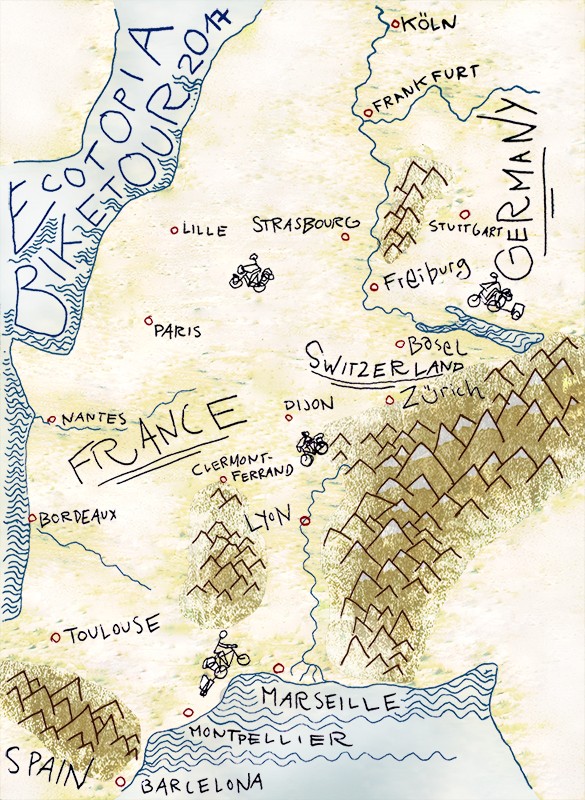 ECOTOPIA
BIKETOUR 2017
KÖLN
FRANKFURT
GERMANY
LILLE
STRASBOURG
STUTTGART
Freiburg
PARIS
Basel
SWITZERLAND
Zürich
NANTES
DIJON
FRANCE
CLERMONT-
FERRAND
BORDEAUX
LYON
TOULOUSE
MARSEILLE
MONTPELLIER
SPAIN
BARCELONA